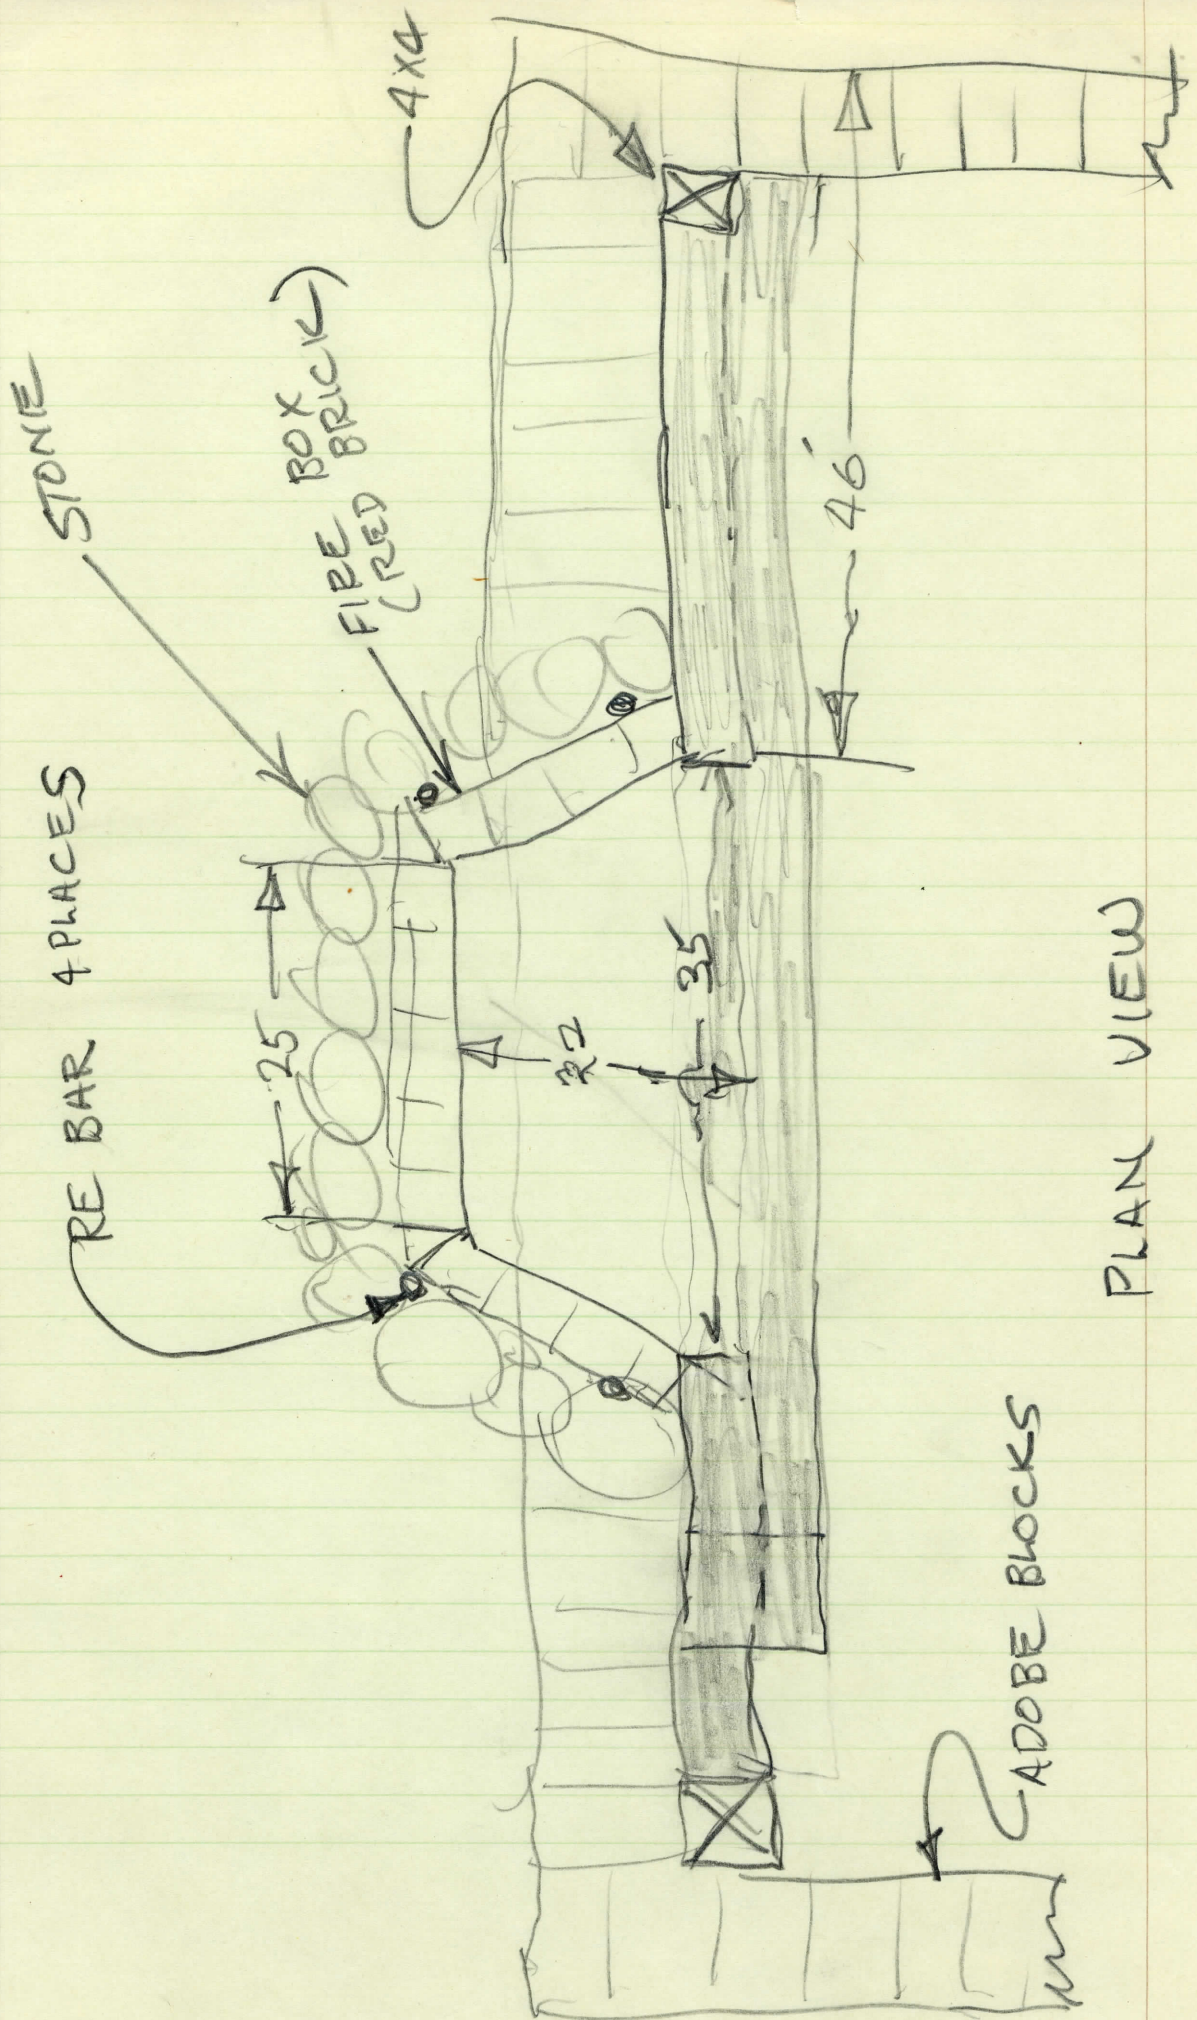 RE BAR 4 PLACES
STONE
FIRE BOX
(RED BRICK)
4X4
25
35
46
ADOBE BLOCKS
PLAN VIEW